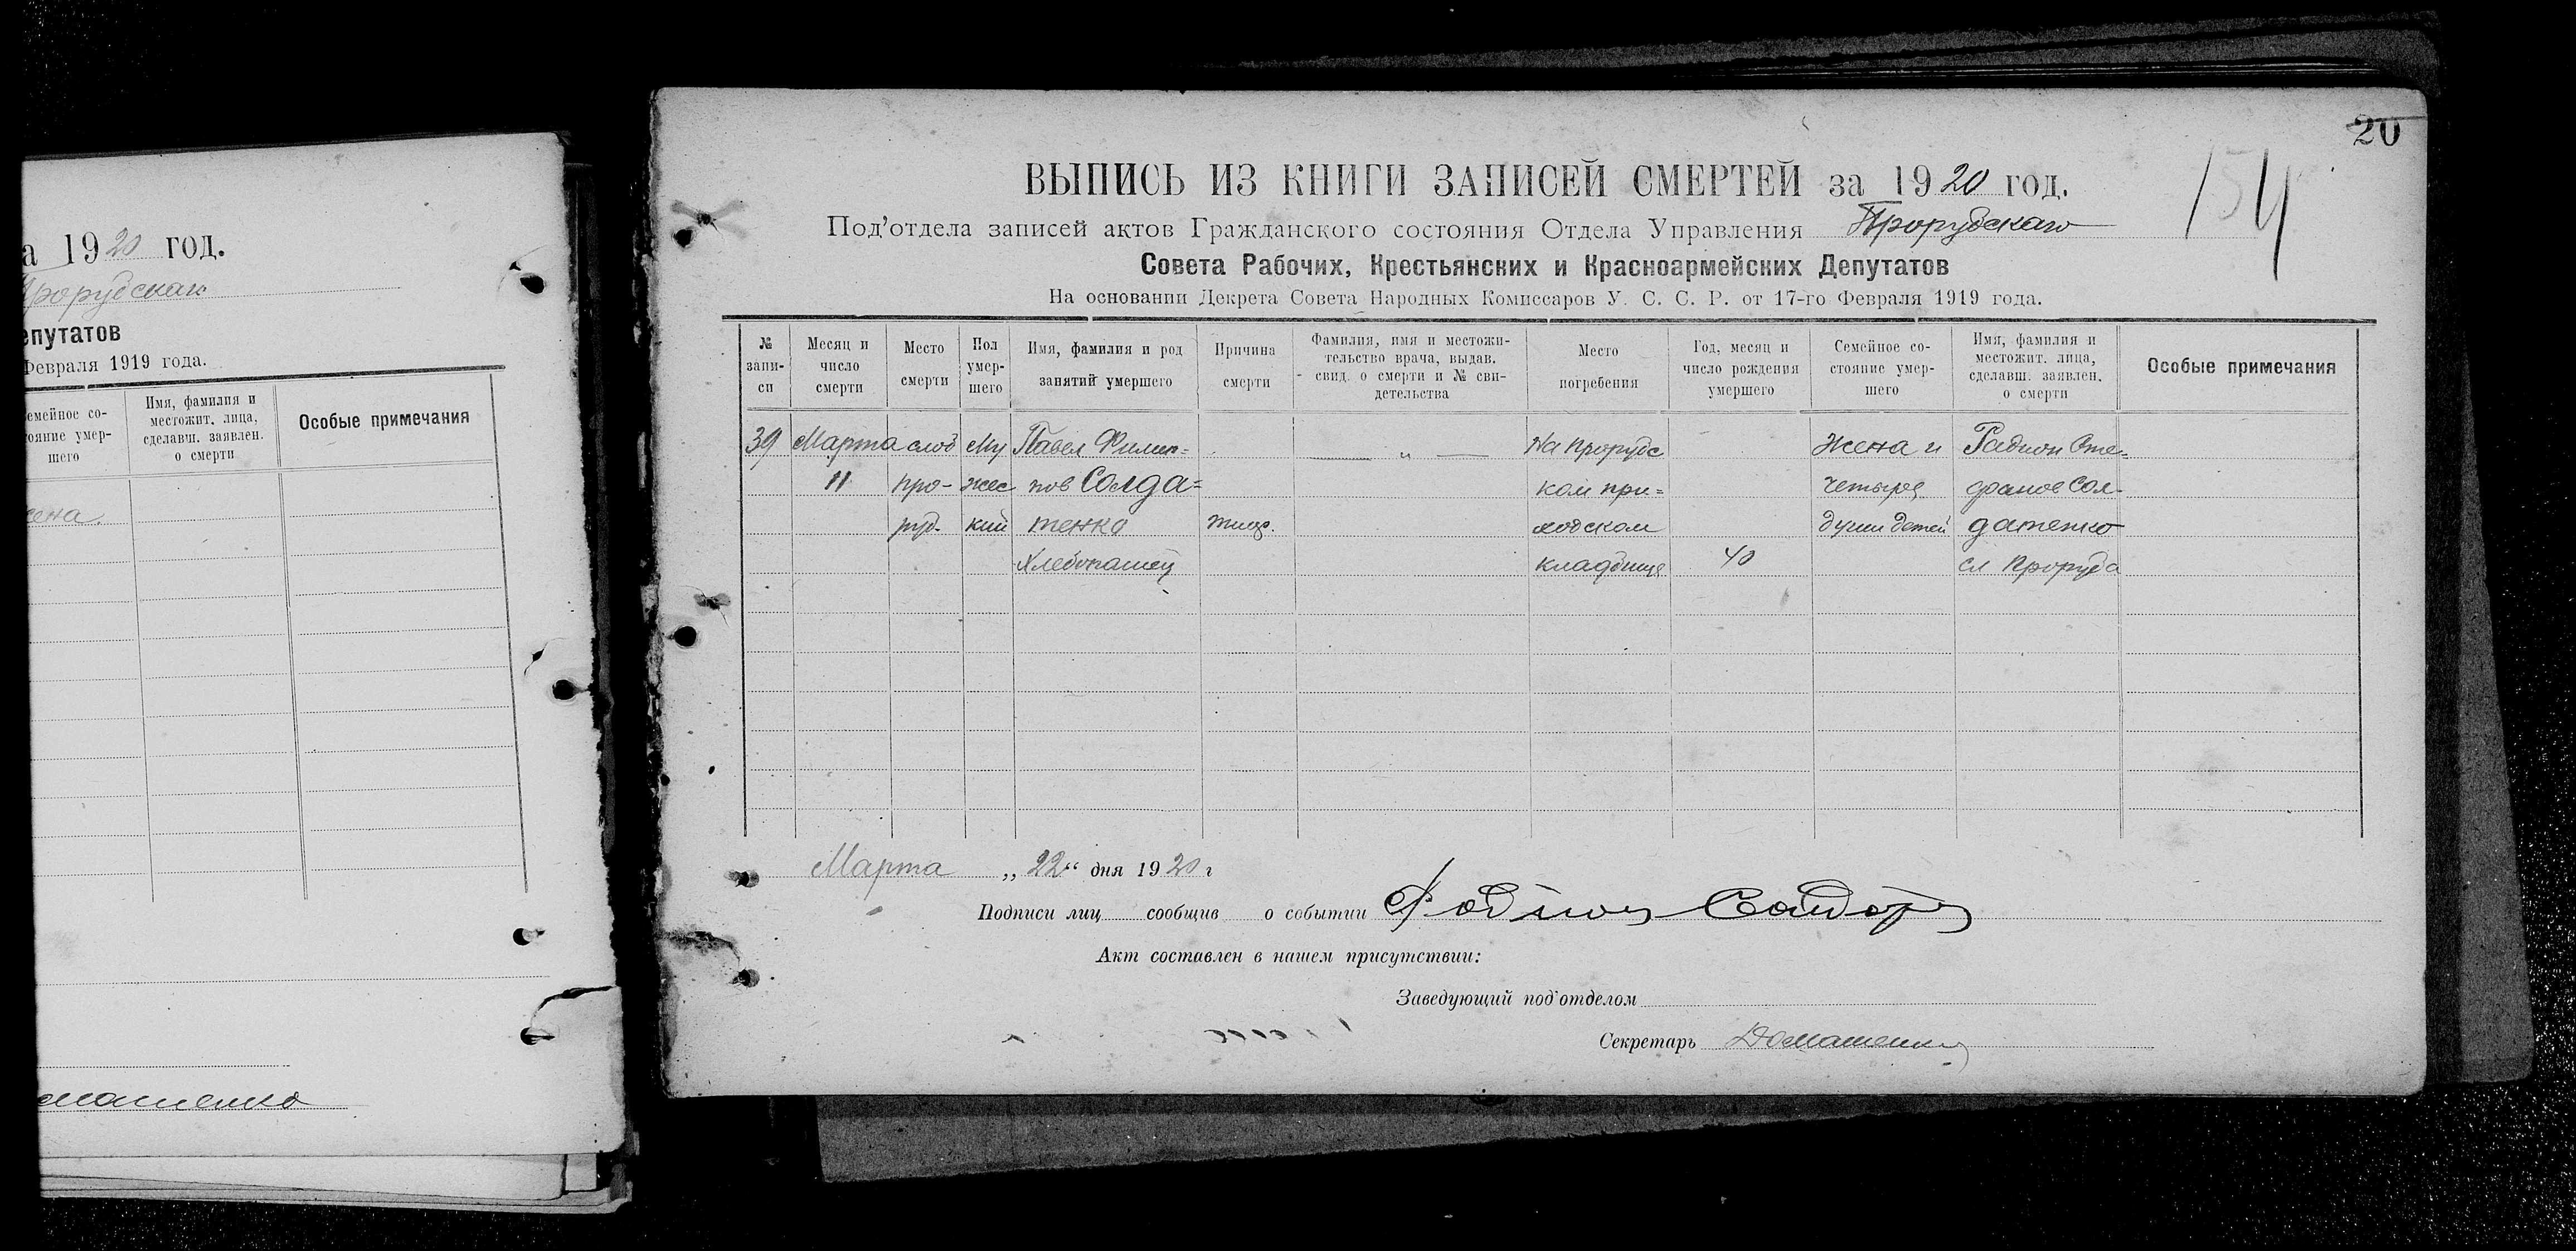 а 1920 год.
Прорудскаго
епутатов
Февраля 1919 года.
емейное со-
тояние умер-
шего
Имя, фамилия и
местожит. лица,
сделавш. заявлен.
о смерти
Особые примечания
жена.
омашенко
20
154
ВЫПИСЬ ИЗ КНИГИ ЗАПИСЕЙ СМЕРТЕЙ за 1920 год.
Под'отдела записей актов Гражданского состояния Отдела Управления Прорубскаго
Совета Рабочих, Крестьянских и Красноармейских Депутатов
На основании Декрета Совета Народных Комиссаров У. С. С. Р. от 17-го Февраля 1919 года.
№
запи-
си
Месяц и
число
смерти
Место
смерти
Пол
умер-
шего
Имя, фамилия и род
занятий умершего
Причина
смерти
Фамилия, имя и местожи-
тельство врача, выдав.
свид. о смерти и № сви-
детельства
Место
погребения
Год, месяц и
число рождения
умершего
Семейное со-
стояние умер-
шего
Имя, фамилия и
местожит. лица,
сделавш. заявлен.
о смерти
Особые примечания
39 Марта слоб Му Павел Филип= — „ — На Прорубс Жена и Радион Сте=
11 про- жес пов Солда= ком при= четыре фанов Сол-
руб. кий тенко тиф. ходском души детей датенко
Хлебопашец кладбище 40 сл Проруба
Марта „22“ дня 1920 г
Подписи лиц сообщив о событии Родион
Акт составлен в нашем присутствии:
Заведующий под'отделом
Секретарь Домашенко